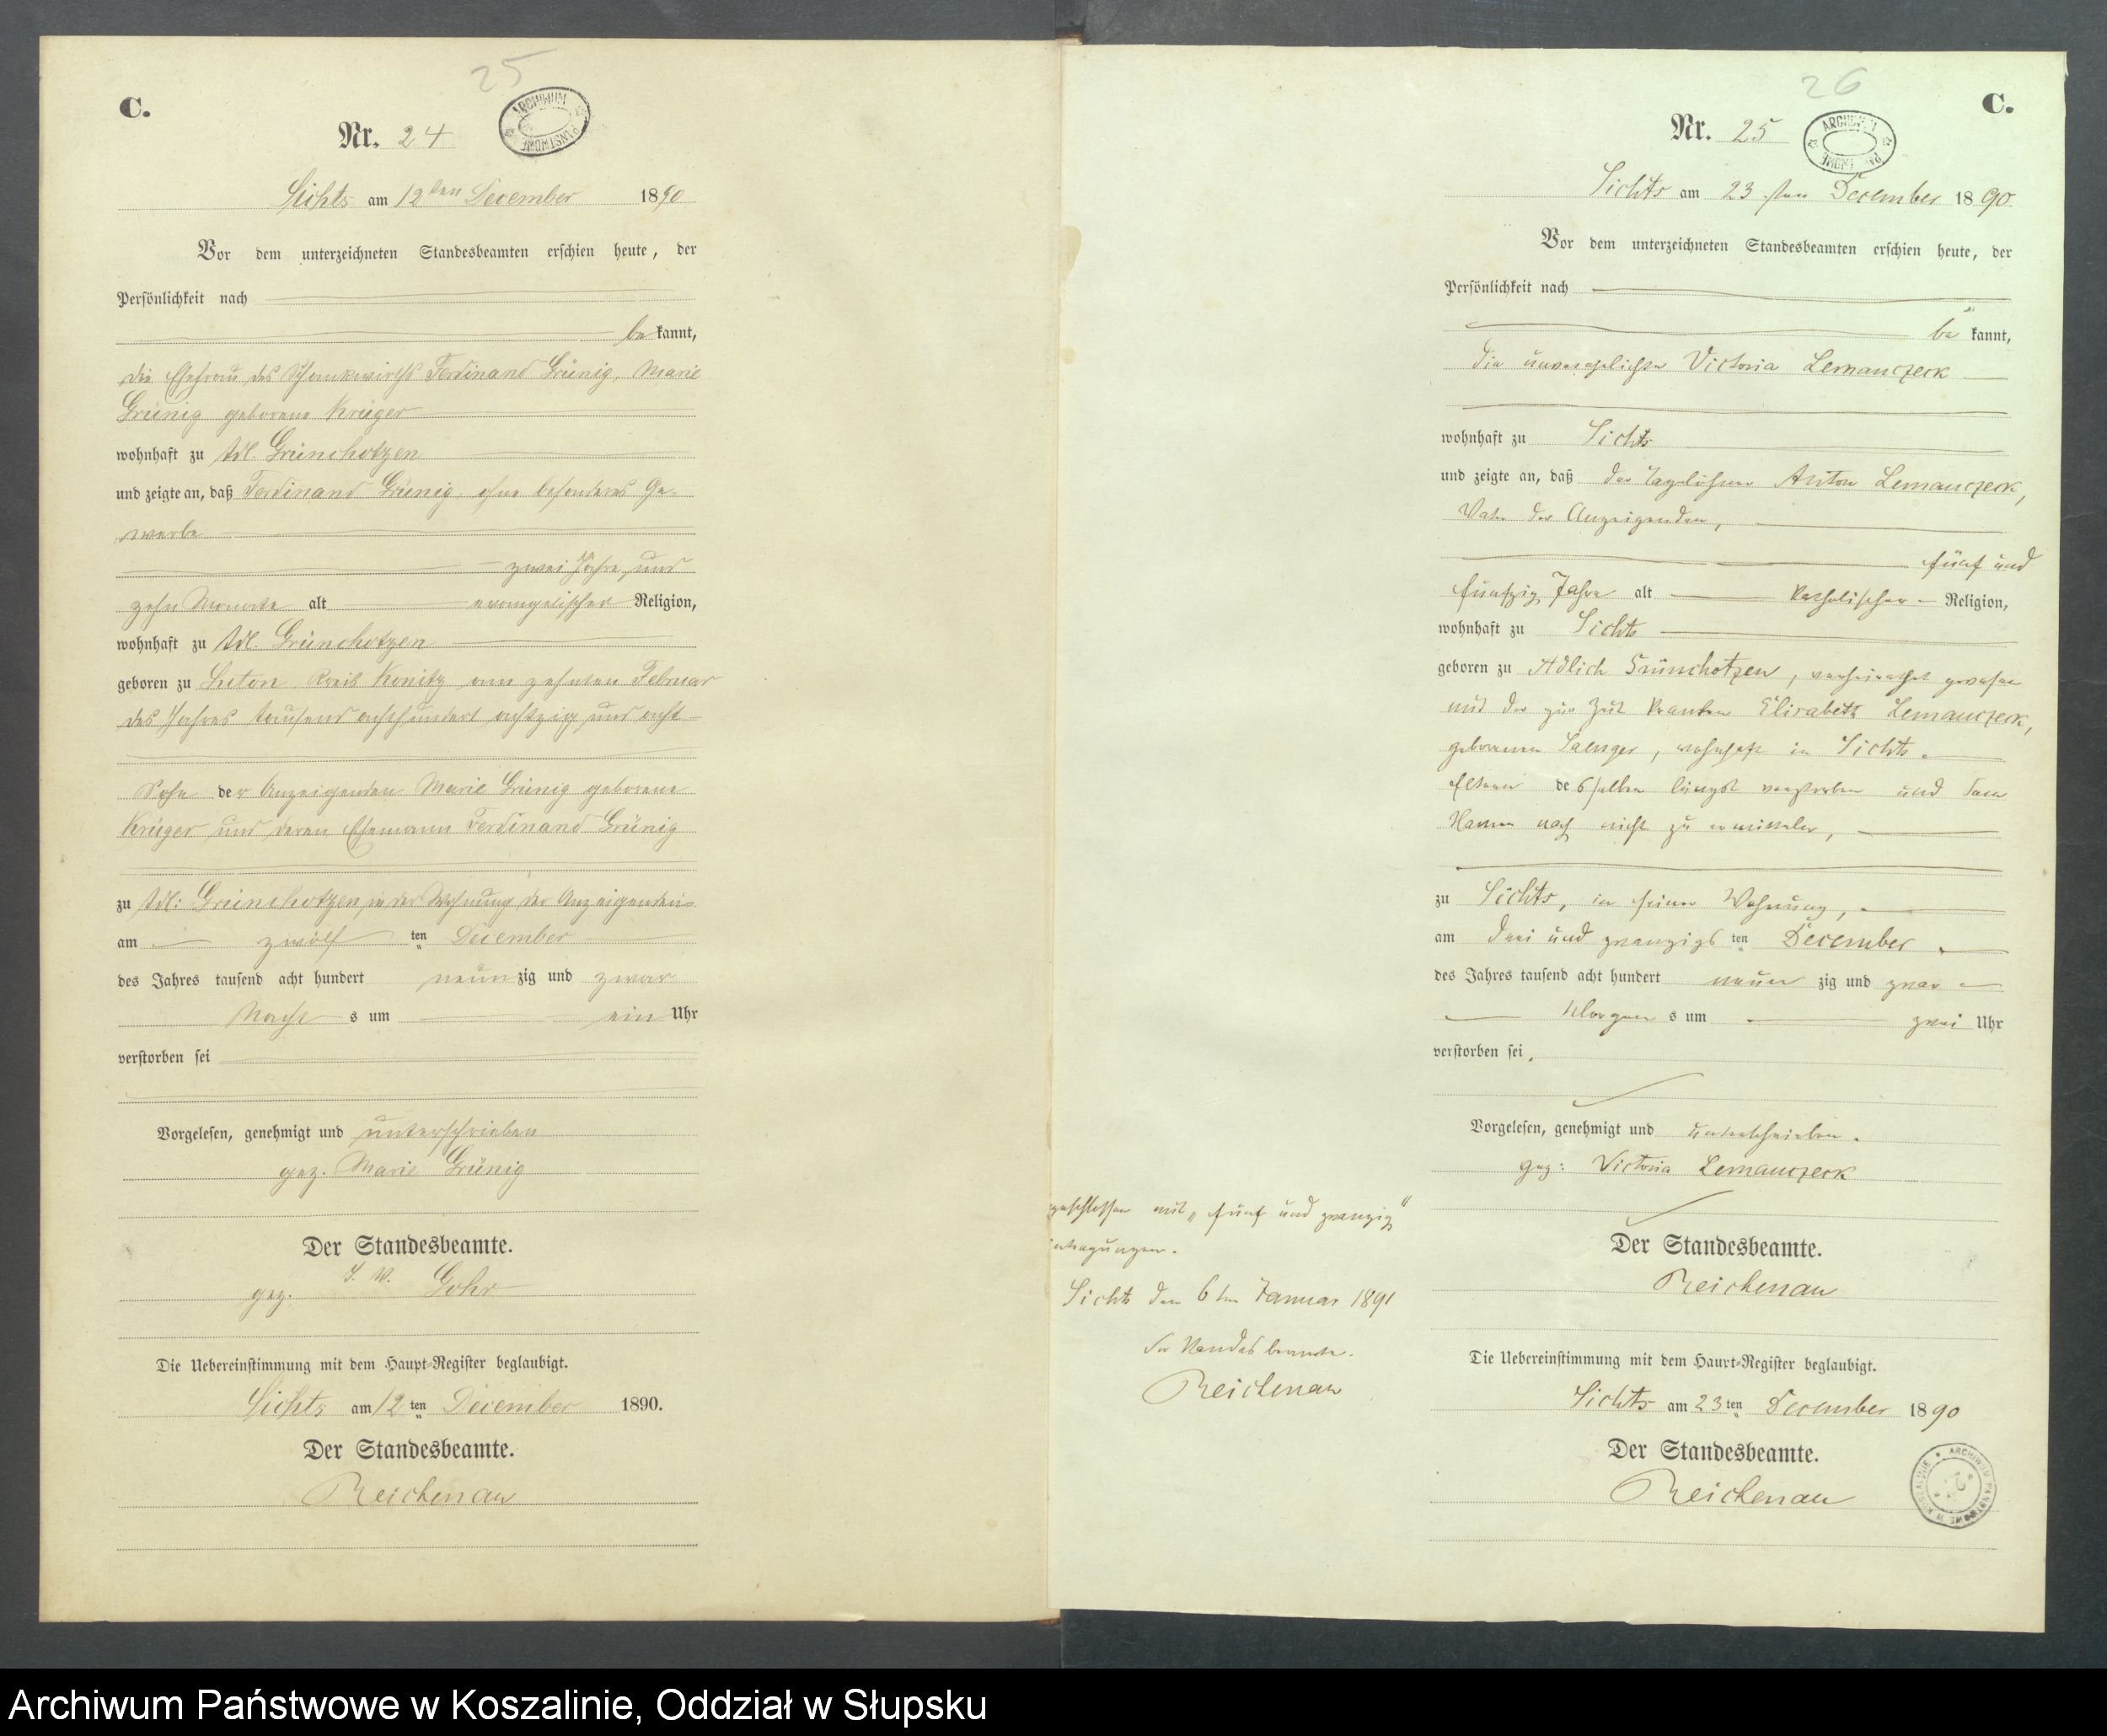 25
C.
Nr. 24
ARCHIWUM PAŃSTWOWE
Sichts am 12ten December 1890
Vor dem unterzeichneten Standesbeamten erschien heute, der
Persönlichkeit nach
be kannt,
die Ehefrau des Schankwirths Ferdinand Grünig, Marie
Grünig geborene Krüger
wohnhaft zu Adl. Grünchotzen
und zeigte an, daß Ferdinand Grünig, ohne besonderes Ge-
werbe
zwei Jahre und
zehn Monate alt evangelischer Religion,
wohnhaft zu Adl. Grünchotzen
geboren zu Kreis Konitz am zehnten Februar
des Jahres tausend achthundert achtzig und acht
Sohn der Anzeigenden Marie Grünig geborene
Krüger und deren Ehemann Ferdinand Grünig
zu Adl: Grünchotzen, in der Wohnung der Anzeigenden
am zwölf ten December
des Jahres tausend acht hundert neun zig und zwar
Nacht s um ein Uhr
verstorben sei
Vorgelesen, genehmigt und unterschrieben
gez. Marie Grünig
Der Standesbeamte.
J. V.
gez. Gohr
Die Uebereinstimmung mit dem Haupt-Register beglaubigt.
Sichts am 12 ten December 1890.
Der Standesbeamte.
Reichenau
geschlossen mit „fünf und zwanzig"
intragungen.
Sichts den 6ten Januar 1891
Der Standesbeamte.
Reichenau
26
C.
Nr. 25
ARCHIWUM PAŃSTWOWE
Sichts am 23 sten December 1890
Vor dem unterzeichneten Standesbeamten erschien heute, der
Persönlichkeit nach
be kannt,
die unverehelichte Victoria Lemanczeck
wohnhaft zu Sichts
und zeigte an, daß der Tagelöhner Anton Lemanczeck,
Vater der Anzeigenden,
fünf und
fünfzig Jahre alt katholischer Religion,
wohnhaft zu Sichts
geboren zu Adlich Grünchotzen, verheirathet gewesen
mit der zur Zeit kranken Elisabeth Lemanczeck,
geborenen Saenger, wohnhaft in Sichts.
Eltern desselben längst verstorben und dem
Namen nach nicht zu ermitteln,
zu Sichts, in seiner Wohnung,
am drei und zwanzigs ten December
des Jahres tausend acht hundert neun zig und zwar
Morgen s um zwei Uhr
verstorben sei.
Vorgelesen, genehmigt und unterschrieben.
gez: Victoria Lemanczeck
Der Standesbeamte.
Reichenau
Die Uebereinstimmung mit dem Haupt-Register beglaubigt.
Sichts am 23 ten December 1890
Der Standesbeamte.
Reichenau
ARCHIWUM PAŃSTWOWE W KOSZALINIE
Archiwum Państwowe w Koszalinie, Oddział w Słupsku